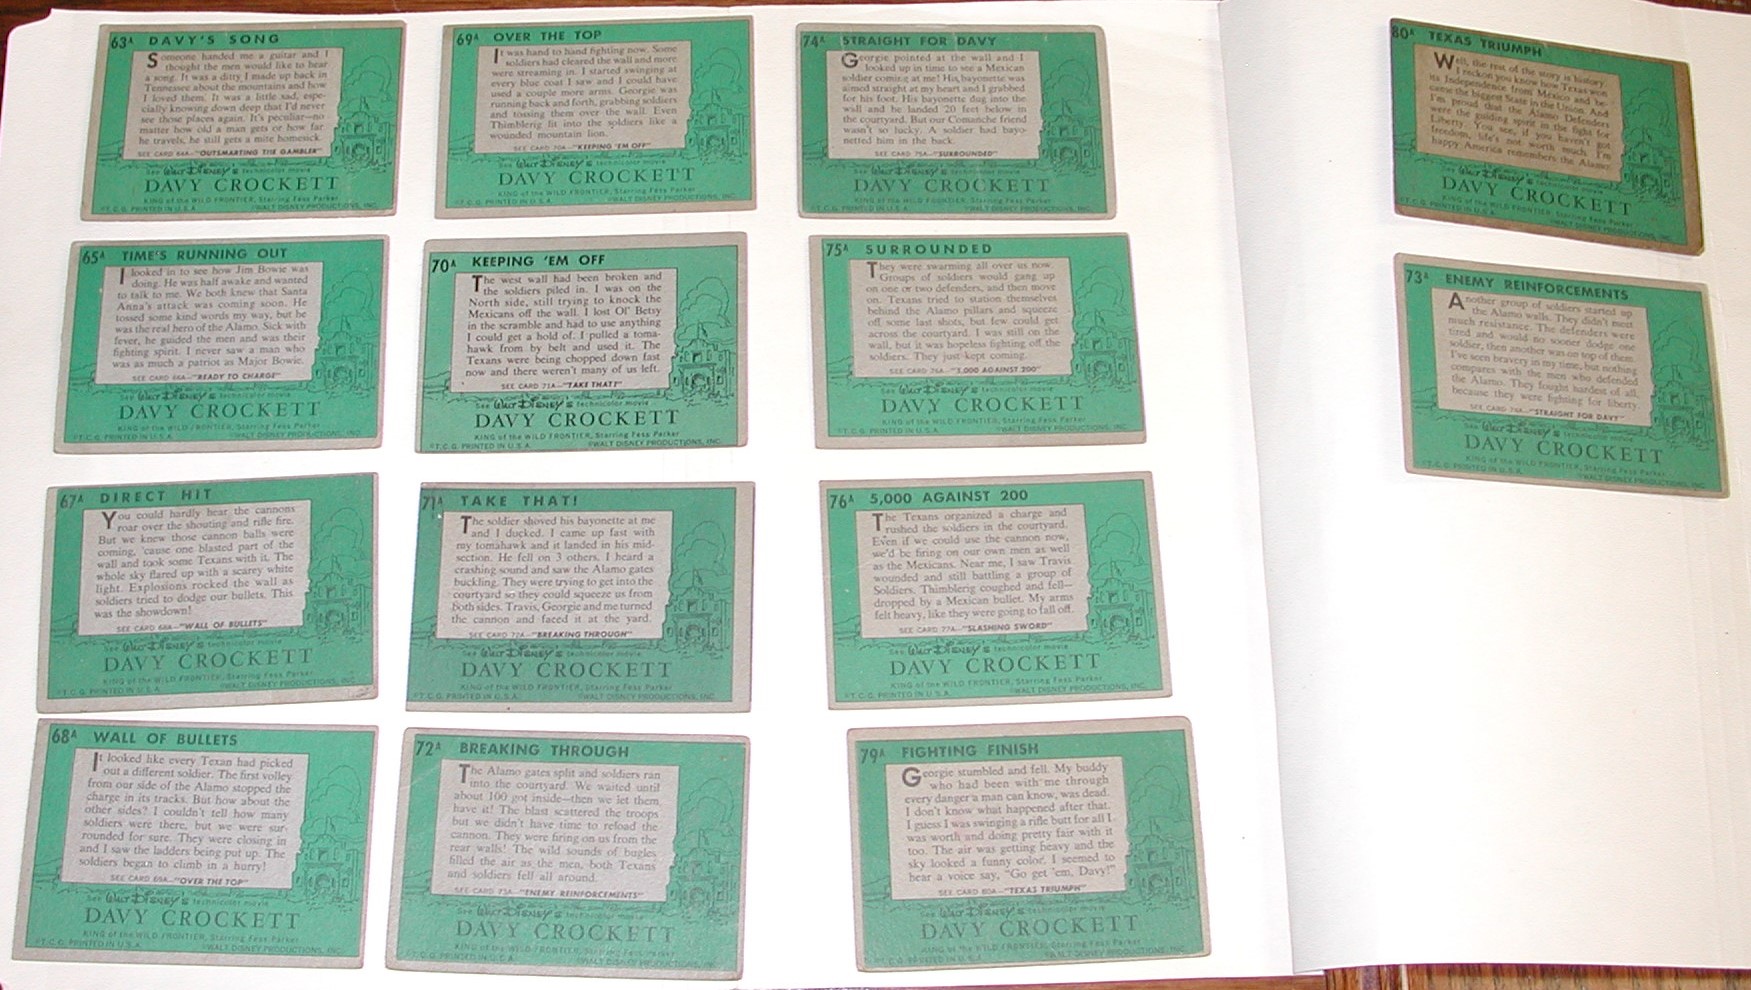 63A DAVY'S SONG
Someone handed me a guitar and I
thought the men would like to hear
a song. It was a ditty I made up back in
Tennessee about the mountains and how
I loved them. It was a little sad, espe-
cially knowing down deep that I'd never
see those places again. It's peculiar—no
matter how old a man gets or how far
he travels, he still gets a mite homesick.
SEE CARD 64A—"OUTSMARTING THE GAMBLER"
See Walt Disney's technicolor movie
DAVY CROCKETT
KING of the WILD FRONTIER, Starring Fess Parker
©T.C.G. PRINTED IN U.S.A. ©WALT DISNEY PRODUCTIONS, INC.
65A TIME'S RUNNING OUT
I looked in to see how Jim Bowie was
doing. He was half awake and wanted
to talk to me. We both knew that Santa
Anna's attack was coming soon. He
tossed some kind words my way, but he
was the real hero of the Alamo. Sick with
fever, he guided the men and was their
fighting spirit. I never saw a man who
was as much a patriot as Major Bowie.
SEE CARD 66A—"READY TO CHARGE"
See Walt Disney's technicolor movie
DAVY CROCKETT
KING of the WILD FRONTIER, Starring Fess Parker
©T.C.G. PRINTED IN U.S.A. ©WALT DISNEY PRODUCTIONS, INC.
67A DIRECT HIT
You could hardly hear the cannons
roar over the shouting and rifle fire.
But we knew those cannon balls were
coming, 'cause one blasted part of the
wall and took some Texans with it. The
whole sky flared up with a scarey white
light. Explosions rocked the wall as
soldiers tried to dodge our bullets. This
was the showdown!
SEE CARD 68A—"WALL OF BULLETS"
See Walt Disney's technicolor movie
DAVY CROCKETT
KING of the WILD FRONTIER, Starring Fess Parker
©T.C.G. PRINTED IN U.S.A. ©WALT DISNEY PRODUCTIONS, INC.
68A WALL OF BULLETS
It looked like every Texan had picked
out a different soldier. The first volley
from our side of the Alamo stopped the
charge in its tracks. But how about the
other sides? I couldn't tell how many
soldiers were there, but we were sur-
rounded for sure. They were closing in
and I saw the ladders being put up. The
soldiers began to climb in a hurry!
SEE CARD 69A—"OVER THE TOP"
See Walt Disney's technicolor movie
DAVY CROCKETT
KING of the WILD FRONTIER, Starring Fess Parker
©T.C.G. PRINTED IN U.S.A. ©WALT DISNEY PRODUCTIONS, INC.
69A OVER THE TOP
It was hand to hand fighting now. Some
soldiers had cleared the wall and more
were streaming in. I started swinging at
every blue coat I saw and I could have
used a couple more arms. Georgie was
running back and forth, grabbing soldiers
and tossing them over the wall. Even
Thimblerig fit into the soldiers like a
wounded mountain lion.
SEE CARD 70A—"KEEPING 'EM OFF"
See Walt Disney's technicolor movie
DAVY CROCKETT
KING of the WILD FRONTIER, Starring Fess Parker
©T.C.G. PRINTED IN U.S.A. ©WALT DISNEY PRODUCTIONS, INC.
70A KEEPING 'EM OFF
The west wall had been broken and
the soldiers piled in. I was on the
North side, still trying to knock the
Mexicans off the wall. I lost Ol' Betsy
in the scramble and had to use anything
I could get a hold of. I pulled a toma-
hawk from by belt and used it. The
Texans were being chopped down fast
now and there weren't many of us left.
SEE CARD 71A—"TAKE THAT!"
See Walt Disney's technicolor movie
DAVY CROCKETT
KING of the WILD FRONTIER, Starring Fess Parker
©T.C.G. PRINTED IN U.S.A. ©WALT DISNEY PRODUCTIONS, INC.
71A TAKE THAT!
The soldier shoved his bayonette at me
and I ducked. I came up fast with
my tomahawk and it landed in his mid-
section. He fell on 3 others. I heard a
crashing sound and saw the Alamo gates
buckling. They were trying to get into the
courtyard so they could squeeze us from
both sides. Travis, Georgie and me turned
the cannon and faced it at the yard.
SEE CARD 72A—"BREAKING THROUGH"
See Walt Disney's technicolor movie
DAVY CROCKETT
KING of the WILD FRONTIER, Starring Fess Parker
©T.C.G. PRINTED IN U.S.A. ©WALT DISNEY PRODUCTIONS, INC.
72A BREAKING THROUGH
The Alamo gates split and soldiers ran
into the courtyard. We waited until
about 100 got inside—then we let them
have it! The blast scattered the troops
but we didn't have time to reload the
cannon. They were firing on us from the
rear walls! The wild sounds of bugles
filled the air as the men, both Texans
and soldiers fell all around.
SEE CARD 73A—"ENEMY REINFORCEMENTS"
See Walt Disney's technicolor movie
DAVY CROCKETT
KING of the WILD FRONTIER, Starring Fess Parker
©T.C.G. PRINTED IN U.S.A. ©WALT DISNEY PRODUCTIONS, INC.
74A STRAIGHT FOR DAVY
Georgie pointed at the wall and I
looked up in time to see a Mexican
soldier coming at me! His bayonette was
aimed straight at my heart and I grabbed
for his foot. His bayonette dug into the
wall and he landed 20 feet below in
the courtyard. But our Comanche friend
wasn't so lucky. A soldier had bayo-
netted him in the back.
SEE CARD 75A—"SURROUNDED"
See Walt Disney's technicolor movie
DAVY CROCKETT
KING of the WILD FRONTIER, Starring Fess Parker
©T.C.G. PRINTED IN U.S.A. ©WALT DISNEY PRODUCTIONS, INC.
75A SURROUNDED
They were swarming all over us now.
Groups of soldiers would gang up
on one or two defenders, and then move
on. Texans tried to station themselves
behind the Alamo pillars and squeeze
off some last shots, but few could get
across the courtyard. I was still on the
wall, but it was hopeless fighting off the
soldiers. They just kept coming.
SEE CARD 76A—"5,000 AGAINST 200"
See Walt Disney's technicolor movie
DAVY CROCKETT
KING of the WILD FRONTIER, Starring Fess Parker
©T.C.G. PRINTED IN U.S.A. ©WALT DISNEY PRODUCTIONS, INC.
76A 5,000 AGAINST 200
The Texans organized a charge and
rushed the soldiers in the courtyard.
Even if we could use the cannon now,
we'd be firing on our own men as well
as the Mexicans. Near me, I saw Travis
wounded and still battling a group of
Soldiers. Thimblerig coughed and fell—
dropped by a Mexican bullet. My arms
felt heavy, like they were going to fall off.
SEE CARD 77A—"SLASHING SWORD"
See Walt Disney's technicolor movie
DAVY CROCKETT
KING of the WILD FRONTIER, Starring Fess Parker
©T.C.G. PRINTED IN U.S.A. ©WALT DISNEY PRODUCTIONS, INC.
79A FIGHTING FINISH
Georgie stumbled and fell. My buddy
who had been with me through
every danger a man can know, was dead.
I don't know what happened after that.
I guess I was swinging a rifle butt for all I
was worth and doing pretty fair with it
too. The air was getting heavy and the
sky looked a funny color. I seemed to
hear a voice say, "Go get 'em, Davy!"
SEE CARD 80A—"TEXAS TRIUMPH"
See Walt Disney's technicolor movie
DAVY CROCKETT
KING of the WILD FRONTIER, Starring Fess Parker
©T.C.G. PRINTED IN U.S.A. ©WALT DISNEY PRODUCTIONS, INC.
80A TEXAS TRIUMPH
Well, the rest of the story is history.
I reckon you know how Texas won
its Independence from Mexico and be-
came the biggest State in the Union. And
I'm proud that the Alamo Defenders
were the guiding spirit in the fight for
Liberty. You see, if you haven't got
freedom, life's not worth much. I'm
happy America remembers the Alamo!
See Walt Disney's technicolor movie
DAVY CROCKETT
KING of the WILD FRONTIER, Starring Fess Parker
©T.C.G. PRINTED IN U.S.A.
73A ENEMY REINFORCEMENTS
Another group of soldiers started up
the Alamo walls. They didn't meet
much resistance. The defenders were
tired and would no sooner dodge one
soldier, then another was on top of them.
I've seen bravery in my time, but nothing
compares with the men who defended
the Alamo. They fought hardest of all,
because they were fighting for liberty.
SEE CARD 74A—"STRAIGHT FOR DAVY"
See Walt Disney's technicolor movie
DAVY CROCKETT
KING of the WILD FRONTIER, Starring Fess Parker
©T.C.G. PRINTED IN U.S.A. ©WALT DISNEY PRODUCTIONS, INC.